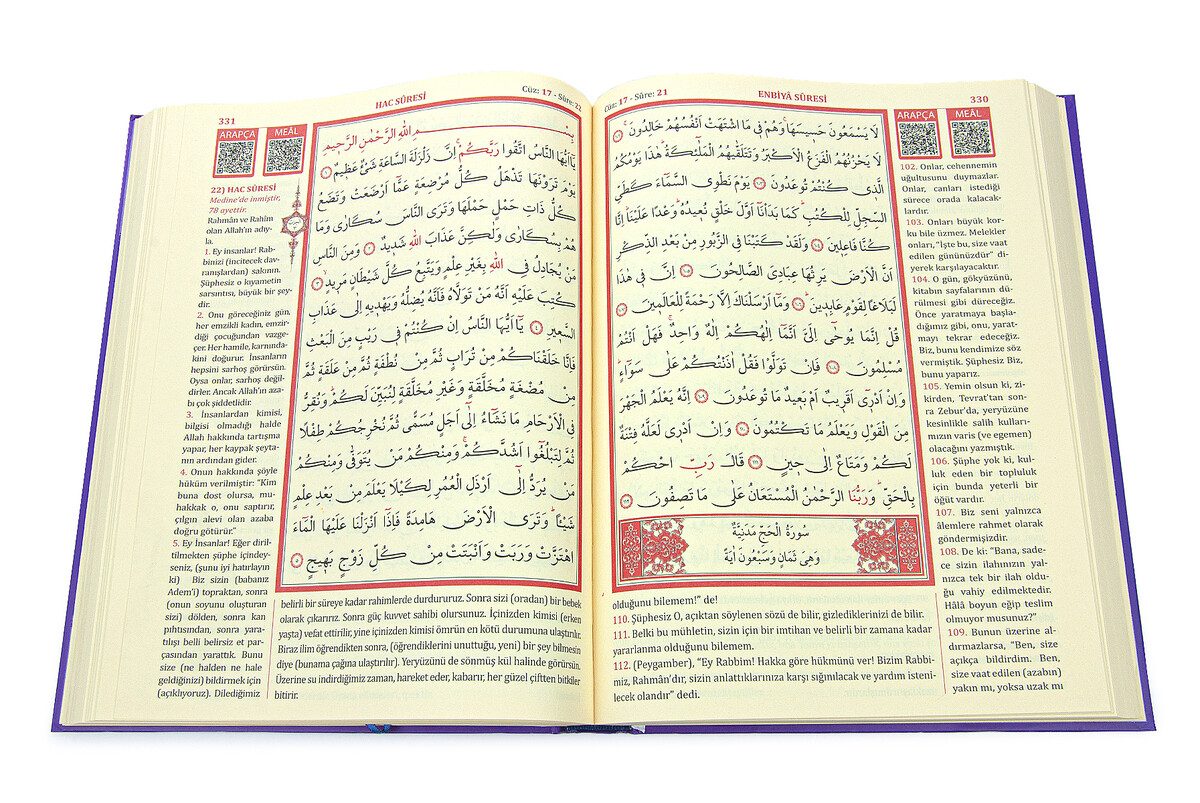 Cüz: 17 - Sûre: 21
ENBİYÂ SÛRESİ
330
ARAPÇA
MEÂL
لَا يَسْمَعُونَ حَسِيسَهَا وَهُمْ فِي مَا اشْتَهَتْ اَنْفُسُهُمْ خَالِدُونَ ١٠٢
لَا يَحْزُنُهُمُ الْفَزَعُ الْاَكْبَرُ وَتَتَلَقّٰيهُمُ الْمَلٰٓئِكَةُ هٰذَا يَوْمُكُمُ
الَّذِي كُنْتُمْ تُوعَدُونَ ١٠٣ يَوْمَ نَطْوِي السَّمَٓاءَ كَطَيِّ
السِّجِلِّ لِلْكُتُبِ كَمَا بَدَأْنَٓا اَوَّلَ خَلْقٍ نُعِيدُهُ وَعْدًا عَلَيْنَا اِنَّا
كُنَّا فَاعِلِينَ ١٠٤ وَلَقَدْ كَتَبْنَا فِي الزَّبُورِ مِنْ بَعْدِ الذِّكْرِ
اَنَّ الْاَرْضَ يَرِثُهَا عِبَادِيَ الصَّالِحُونَ ١٠٥ اِنَّ فِي هٰذَا
لَبَلَاغًا لِقَوْمٍ عَابِدِينَ ١٠٦ وَمَٓا اَرْسَلْنَاكَ اِلَّا رَحْمَةً لِلْعَالَمِينَ ١٠٧
قُلْ اِنَّمَا يُوحٰٓى اِلَيَّ اَنَّمَٓا اِلٰهُكُمْ اِلٰهٌ وَاحِدٌ فَهَلْ اَنْتُمْ
مُسْلِمُونَ ١٠٨ فَاِنْ تَوَلَّوْا فَقُلْ اٰذَنْتُكُمْ عَلٰى سَوَٓاءٍ
وَاِنْ اَدْرِٓي اَقَرِيبٌ اَمْ بَعِيدٌ مَا تُوعَدُونَ ١٠٩ اِنَّهُ يَعْلَمُ الْجَهْرَ
مِنَ الْقَوْلِ وَيَعْلَمُ مَا تَكْتُمُونَ ١١٠ وَاِنْ اَدْرِي لَعَلَّهُ فِتْنَةٌ
لَكُمْ وَمَتَاعٌ اِلٰى حِينٍ ١١١ قَالَ رَبِّ احْكُمْ
بِالْحَقِّ وَرَبُّنَا الرَّحْمٰنُ الْمُسْتَعَانُ عَلٰى مَا تَصِفُونَ ١١٢
سُورَةُ الْحَجِّ مَدَنِيَّةٌ
وَهِيَ ثَمَانٍ وَسَبْعُونَ اٰيَةً
102. Onlar, cehennemin
uğultusunu duymazlar.
Onlar, canları istediği
sürece orada kalacak-
lardır.
103. Onları büyük kor-
ku bile üzmez. Melekler
onları, "İşte bu, size vaat
edilen gününüzdür" di-
yerek karşılayacaktır.
104. O gün, gökyüzünü,
kitabın sayfalarının dü-
rülmesi gibi düreceğiz.
Önce yaratmaya başla-
dığımız gibi, onu, yarat-
mayı tekrar edeceğiz.
Biz, bunu kendimize söz
vermiştik. Şüphesiz Biz,
bunu yaparız.
105. Yemin olsun ki, zi-
kirden, Tevrat'tan son-
ra Zebur'da, yeryüzüne
kesinlikle salih kulları-
mızın varis (ve egemen)
olacağını yazmıştık.
106. Şüphe yok ki, kul-
luk eden bir topluluk
için bunda yeterli bir
öğüt vardır.
107. Biz seni yalnızca
âlemlere rahmet olarak
göndermişizdir.
108. De ki: "Bana, sade-
ce sizin ilahınızın yal-
nızca tek bir ilah oldu-
ğu vahiy edilmektedir.
Hâlâ boyun eğip teslim
olmuyor musunuz?"
109. Bunun üzerine al-
dırmazlarsa, "Ben, size
açıkça bildirdim. Ben,
size vaat edilen (azabın)
yakın mı, yoksa uzak mı
olduğunu bilemem!" de!
110. Şüphesiz O, açıktan söylenen sözü de bilir, gizlediklerinizi de bilir.
111. Belki bu mühletin, sizin için bir imtihan ve belirli bir zamana kadar
yararlanma olduğunu bilemem.
112. (Peygamber), "Ey Rabbim! Hakka göre hükmünü ver! Bizim Rabbi-
miz, Rahmân'dır, sizin anlattıklarınıza karşı sığınılacak ve yardım isteni-
lecek olandır" dedi.
331
HAC SÛRESİ
Cüz: 17 - Sûre: 21
ARAPÇA
MEÂL
بِسْمِ اللهِ الرَّحْمٰنِ الرَّحِيمِ
يَٓا اَيُّهَا النَّاسُ اتَّقُوا رَبَّكُمْ اِنَّ زَلْزَلَةَ السَّاعَةِ شَيْءٌ عَظِيمٌ ١
يَوْمَ تَرَوْنَهَا تَذْهَلُ كُلُّ مُرْضِعَةٍ عَمَّٓا اَرْضَعَتْ وَتَضَعُ
كُلُّ ذَاتِ حَمْلٍ حَمْلَهَا وَتَرَى النَّاسَ سُكَارٰى وَمَا
هُمْ بِسُكَارٰى وَلٰكِنَّ عَذَابَ اللهِ شَدِيدٌ ٢ وَمِنَ النَّاسِ
مَنْ يُجَادِلُ فِي اللهِ بِغَيْرِ عِلْمٍ وَيَتَّبِعُ كُلَّ شَيْطَانٍ مَرِيدٍ ٣
كُتِبَ عَلَيْهِ اَنَّهُ مَنْ تَوَلَّاهُ فَاَنَّهُ يُضِلُّهُ وَيَهْدِيهِ اِلٰى عَذَابِ
السَّعِيرِ ٤ يَٓا اَيُّهَا النَّاسُ اِنْ كُنْتُمْ فِي رَيْبٍ مِنَ الْبَعْثِ
فَاِنَّا خَلَقْنَاكُمْ مِنْ تُرَابٍ ثُمَّ مِنْ نُطْفَةٍ ثُمَّ مِنْ عَلَقَةٍ ثُمَّ
مِنْ مُضْغَةٍ مُخَلَّقَةٍ وَغَيْرِ مُخَلَّقَةٍ لِنُبَيِّنَ لَكُمْ وَنُقِرُّ
فِي الْاَرْحَامِ مَا نَشَٓاءُ اِلٰٓى اَجَلٍ مُسَمًّى ثُمَّ نُخْرِجُكُمْ طِفْلًا
ثُمَّ لِتَبْلُغُٓوا اَشُدَّكُمْ وَمِنْكُمْ مَنْ يُتَوَفّٰى وَمِنْكُمْ
مَنْ يُرَدُّ اِلٰٓى اَرْذَلِ الْعُمُرِ لِكَيْلَا يَعْلَمَ مِنْ بَعْدِ عِلْمٍ
شَيْـًٔا وَتَرَى الْاَرْضَ هَامِدَةً فَاِذَٓا اَنْزَلْنَا عَلَيْهَا الْمَٓاءَ
اهْتَزَّتْ وَرَبَتْ وَاَنْبَتَتْ مِنْ كُلِّ زَوْجٍ بَهِيجٍ ٥
22) HAC SÛRESİ
Medine'de inmiştir,
78 ayettir.
Rahmân ve Rahîm
olan Allah'ın adıy-
la.
1. Ey insanlar! Rab-
binizi (incitecek dav-
ranışlardan) sakının.
Şüphesiz o kıyametin
sarsıntısı, büyük bir şey-
dir.
2. Onu göreceğiniz gün,
her emzikli kadın, emzir-
diği çocuğundan vazge-
çer. Her hamile, karnında-
kini doğurur. İnsanların
hepsini sarhoş görürsün.
Oysa onlar, sarhoş değil-
dirler. Ancak Allah'ın aza-
bı çok şiddetlidir.
3. İnsanlardan kimisi,
bilgisi olmadığı halde
Allah hakkında tartışma
yapar, her kaypak şeyta-
nın ardından gider.
4. Onun hakkında şöyle
hüküm verilmiştir: "Kim
buna dost olursa, mu-
hakkak o, onu saptırır,
çılgın alevi olan azaba
doğru götürür."
5. Ey İnsanlar! Eğer diril-
tilmekten şüphe içindey-
seniz, (şunu iyi hatırlayın
ki) Biz sizin (babanız
Adem'i) topraktan, sonra
(onun soyunu oluşturan
sizi) dölden, sonra kan
pıhtısından, sonra yara-
tılışı belli belirsiz et par-
çasından yarattık. Bunu
size (ne halden ne hale
geldiğinizi) bildirmek için
(açıklıyoruz). Dilediğimiz
belirli bir süreye kadar rahimlerde durdururuz. Sonra sizi (oradan) bir bebek
olarak çıkarırız. Sonra güç kuvvet sahibi olursunuz. İçinizden kimisi (erken
yaşta) vefat ettirilir, yine içinizden kimisi ömrün en kötü durumuna ulaştırılır.
Biraz ilim öğrendikten sonra, (öğrendiklerini unuttuğu, yeni) bir şey bilmesin
diye (bunama çağına ulaştırılır). Yeryüzünü de sönmüş kül halinde görürsün.
Üzerine su indirdiğimiz zaman, hareket eder, kabarır, her güzel çiftten bitkiler
bitirir.